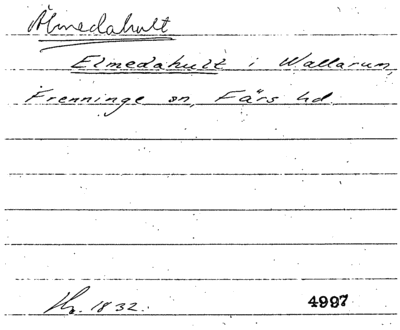 Älmedahult
Elmedahult i Wallarum,
Frenninge sn, Färs hd.
1832. 4997